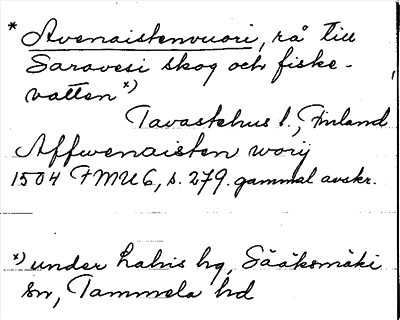 * Avenaistenvuori, rå till
Saravesi skog och fiske-
vatten x)
Tavastehus l., Finland
Affwenaisten worij
1504 FMU 6, s. 279. gammal avskr.
x) under Lahis hg, Sääksmäki
sn, Tammela hd